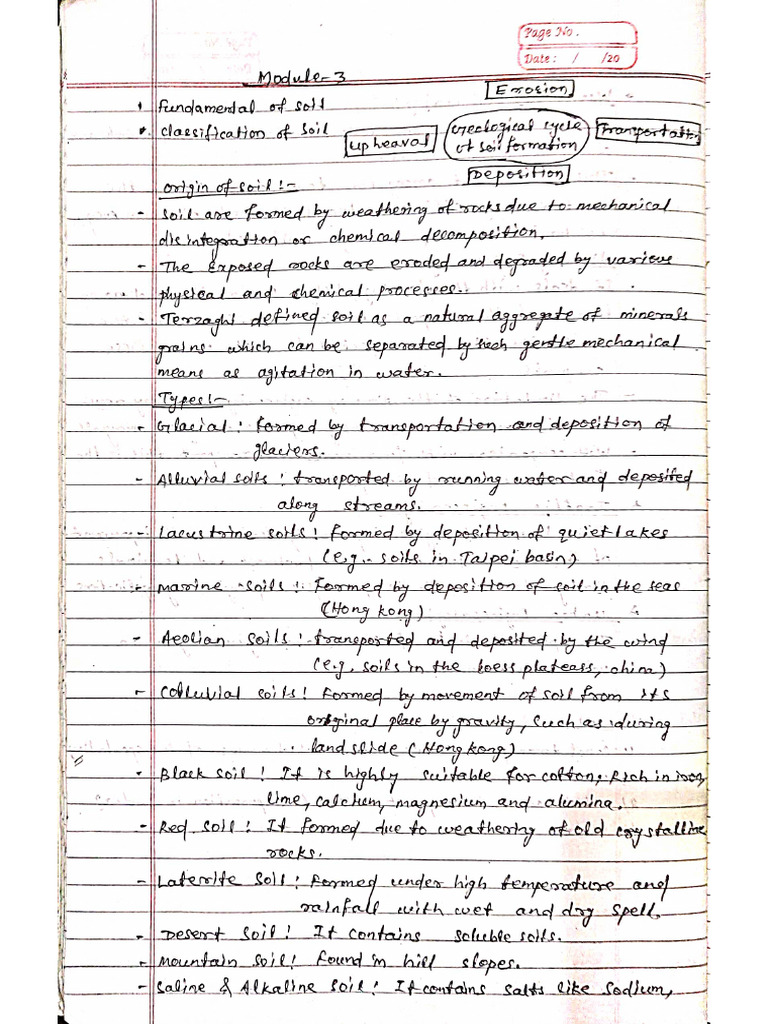 Page No.
Date: / /20
Module-3
Erosion
• Fundamental of soil
• Classification of Soil
Upheaval
Geological cycle
of soil formation
Transportation
Deposition
Origin of soil :-
- Soil are formed by weathering of rocks due to mechanical
disintegration or chemical decomposition.
- The Exposed rocks are eroded and degraded by various
physical and chemical processes.
- Terzaghi defined soil as a natural aggregate of minerals
grains which can be separated by such gentle mechanical
means as agitation in water.
Types :-
- Glacial : formed by transportation and deposition of
glaciers.
- Alluvial soils : transported by running water and deposited
along streams.
- Lacustrine soils : formed by deposition of quiet lakes
(e.g. soils in Taipei basin)
- Marine soils : Formed by deposition of soil in the seas
(Hong kong)
- Aeolian soils : transported and deposited by the wind
(e.g, soils in the loess plateass, china)
- Colluvial soils : formed by movement of soil from its
original place by gravity, such as during
land slide (Hong kong)
- Black soil : It is highly suitable for cotton, Rich in iron,
lime, calcium, magnesium and alumina.
- Red soil : It formed due to weathering of old crystalline
rocks.
- Laterite Soil : formed under high temperature and
rainfall with wet and dry spell.
- Desert soil : It contains soluble soils.
- Mountain soil : found in hill slopes.
- Saline & Alkaline soil : It contains salts like sodium,